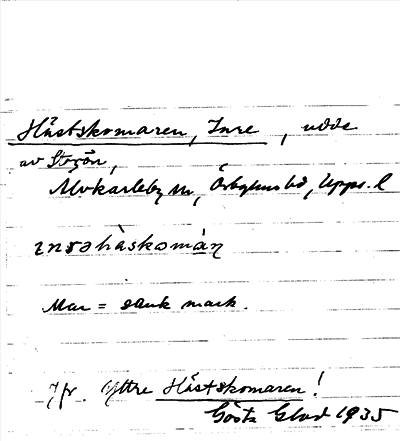 Hästskomaren, Inre, udde
av Storön,
Älvkarleby sn, Örbyhus hd, Upps. l
ɪnrəhàskomàɳ
Mar = sank mark.
Jfr. Yttre Hästskomaren!
Gösta Glad 1935